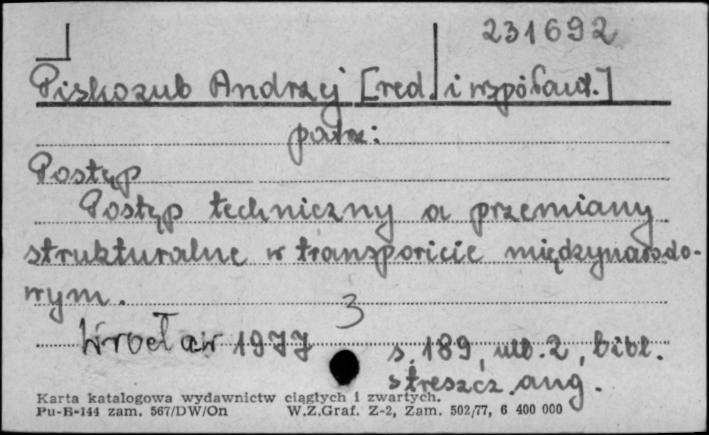 231692
Piskozub Andrzej [red. i współaut.]
patrz:
Postęp
Postęp techniczny a przemiany
strukturalne w transporcie międzynarodo-
wym.
3
Wrocław 1977 s. 189, nlb. 2, bibl.
streszcz. ang.
Karta katalogowa wydawnictw ciągłych i zwartych.
Pu-B-144 zam. 567/DW/On W.Z.Graf. Z-2, Zam. 502/77, 6 400 000